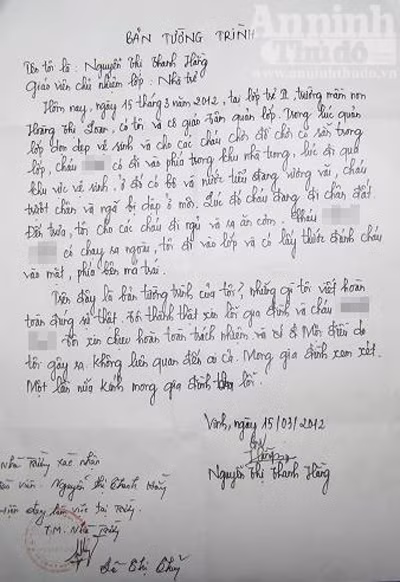 An ninh
Thủ đô
www.anninhthudo.vn
BẢN TƯỜNG TRÌNH
Tên tôi là: Nguyễn Thị Thanh Hằng
Giáo viên chủ nhiệm lớp: Nhà trẻ
Hôm nay, ngày 15 tháng 3 năm 2012, tại lớp trẻ II, trường mầm non
Hoàng Thị Loan, có tôi và cô giáo Trâm quản lớp. Trong lúc quản
lớp dọn dẹp vệ sinh và cho các cháu chơi đồ chơi có sẵn trong
lớp, cháu có đi vào phía trong khu nhà trong, lúc đi qua
khu vực vệ sinh, ở đó có bô và nước tiểu đang vương vãi, cháu
trượt chân và ngã bị dập ở môi. Lúc đó cháu đang đi chân đất.
Đến trưa, tôi cho các cháu đi ngủ và sạ ăn cơm. Cháu
có chạy sạ ngoài, tôi đi vào lớp và có lấy thước đánh cháu
vào mặt, phía bên má trái.
Trên đây là bản tường trình của tôi, những gì tôi viết hoàn
toàn đúng sự thật. Tôi thành thật xin lỗi gia đình và cháu
Tôi xin chịu hoàn toàn trách nhiệm và Mọi điều do
tôi gây sạ. Không liên quan đến ai cả. Mong gia đình xem xét.
Một lần nữa kính mong gia đình lỗi.
Vinh, ngày 15/03/2012
Hằng
Nguyễn Thị Thanh Hằng
Nhà Trường xác nhận
viên Nguyễn Thị Thanh Hằng
hiện đang làm việc tại Trường
T.M. Nhà Trường
Thị Thuỷ